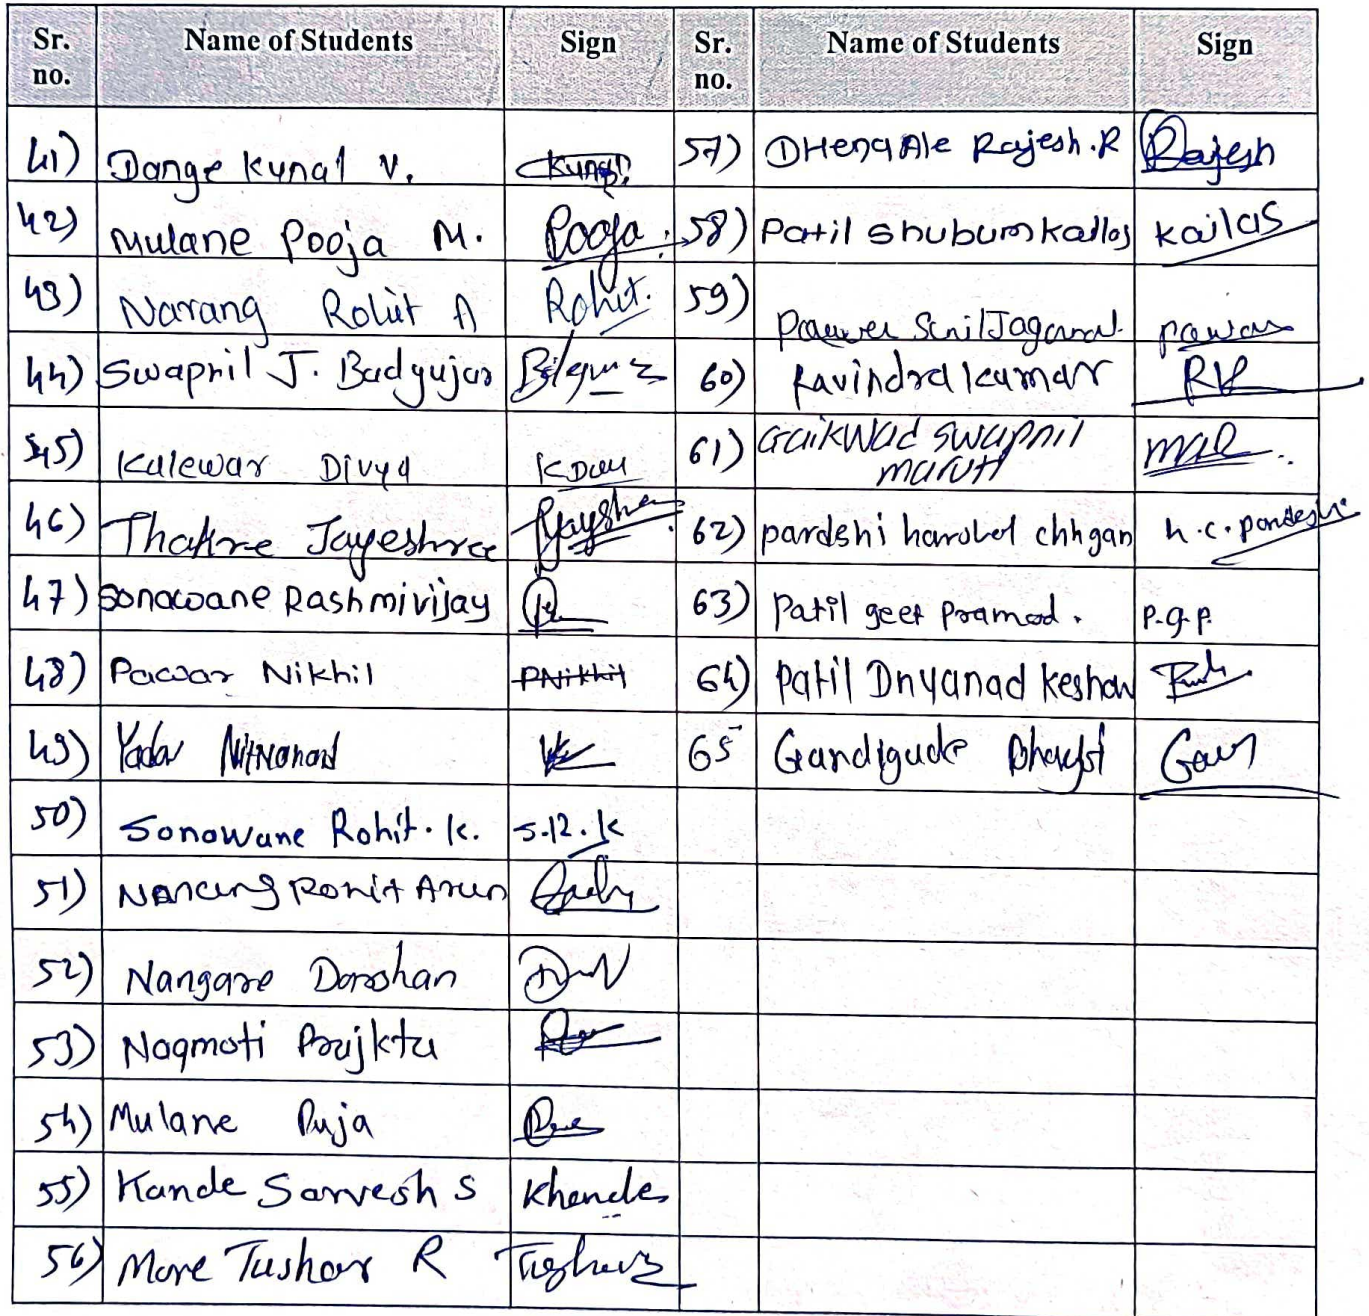 Sr. no. Name of Students Sign Sr. no. Name of Students Sign
41) Dange Kunal V. Kunal 57) DHengAle Rajesh.R Rajesh
42) Mulane Pooja M. Pooja. 58) Patil Shubum kailas kailas
43) Narang Rohit A Rohit. 59) Pawer Sunil Jaganal. pawar
44) Swapnil J. Badgujar 60) Ravindra kumar RK
45) Kalewar Divya 61) Gaikwad swapnil
maruti
46) Thakre Jayeshree Jayshree 62) pardshi chhgan h.c. pardeshi
47) Sonawane Rashmi vijay 63) Patil geet pramod. P.g.P.
48) Pawar Nikhil PNikhil 64) Patil Dnyanad keshav
49) Yadav Nityanand 65 Gandigude
50) Sonawane Rohit. K. S.R.K
51) Narang Rohit Arun
52) Nangare Darshan
53) Nagmoti Prajkta
54) Mulane Puja
55) Kande Sarvesh S Khande
56) More Tushar R Tushar